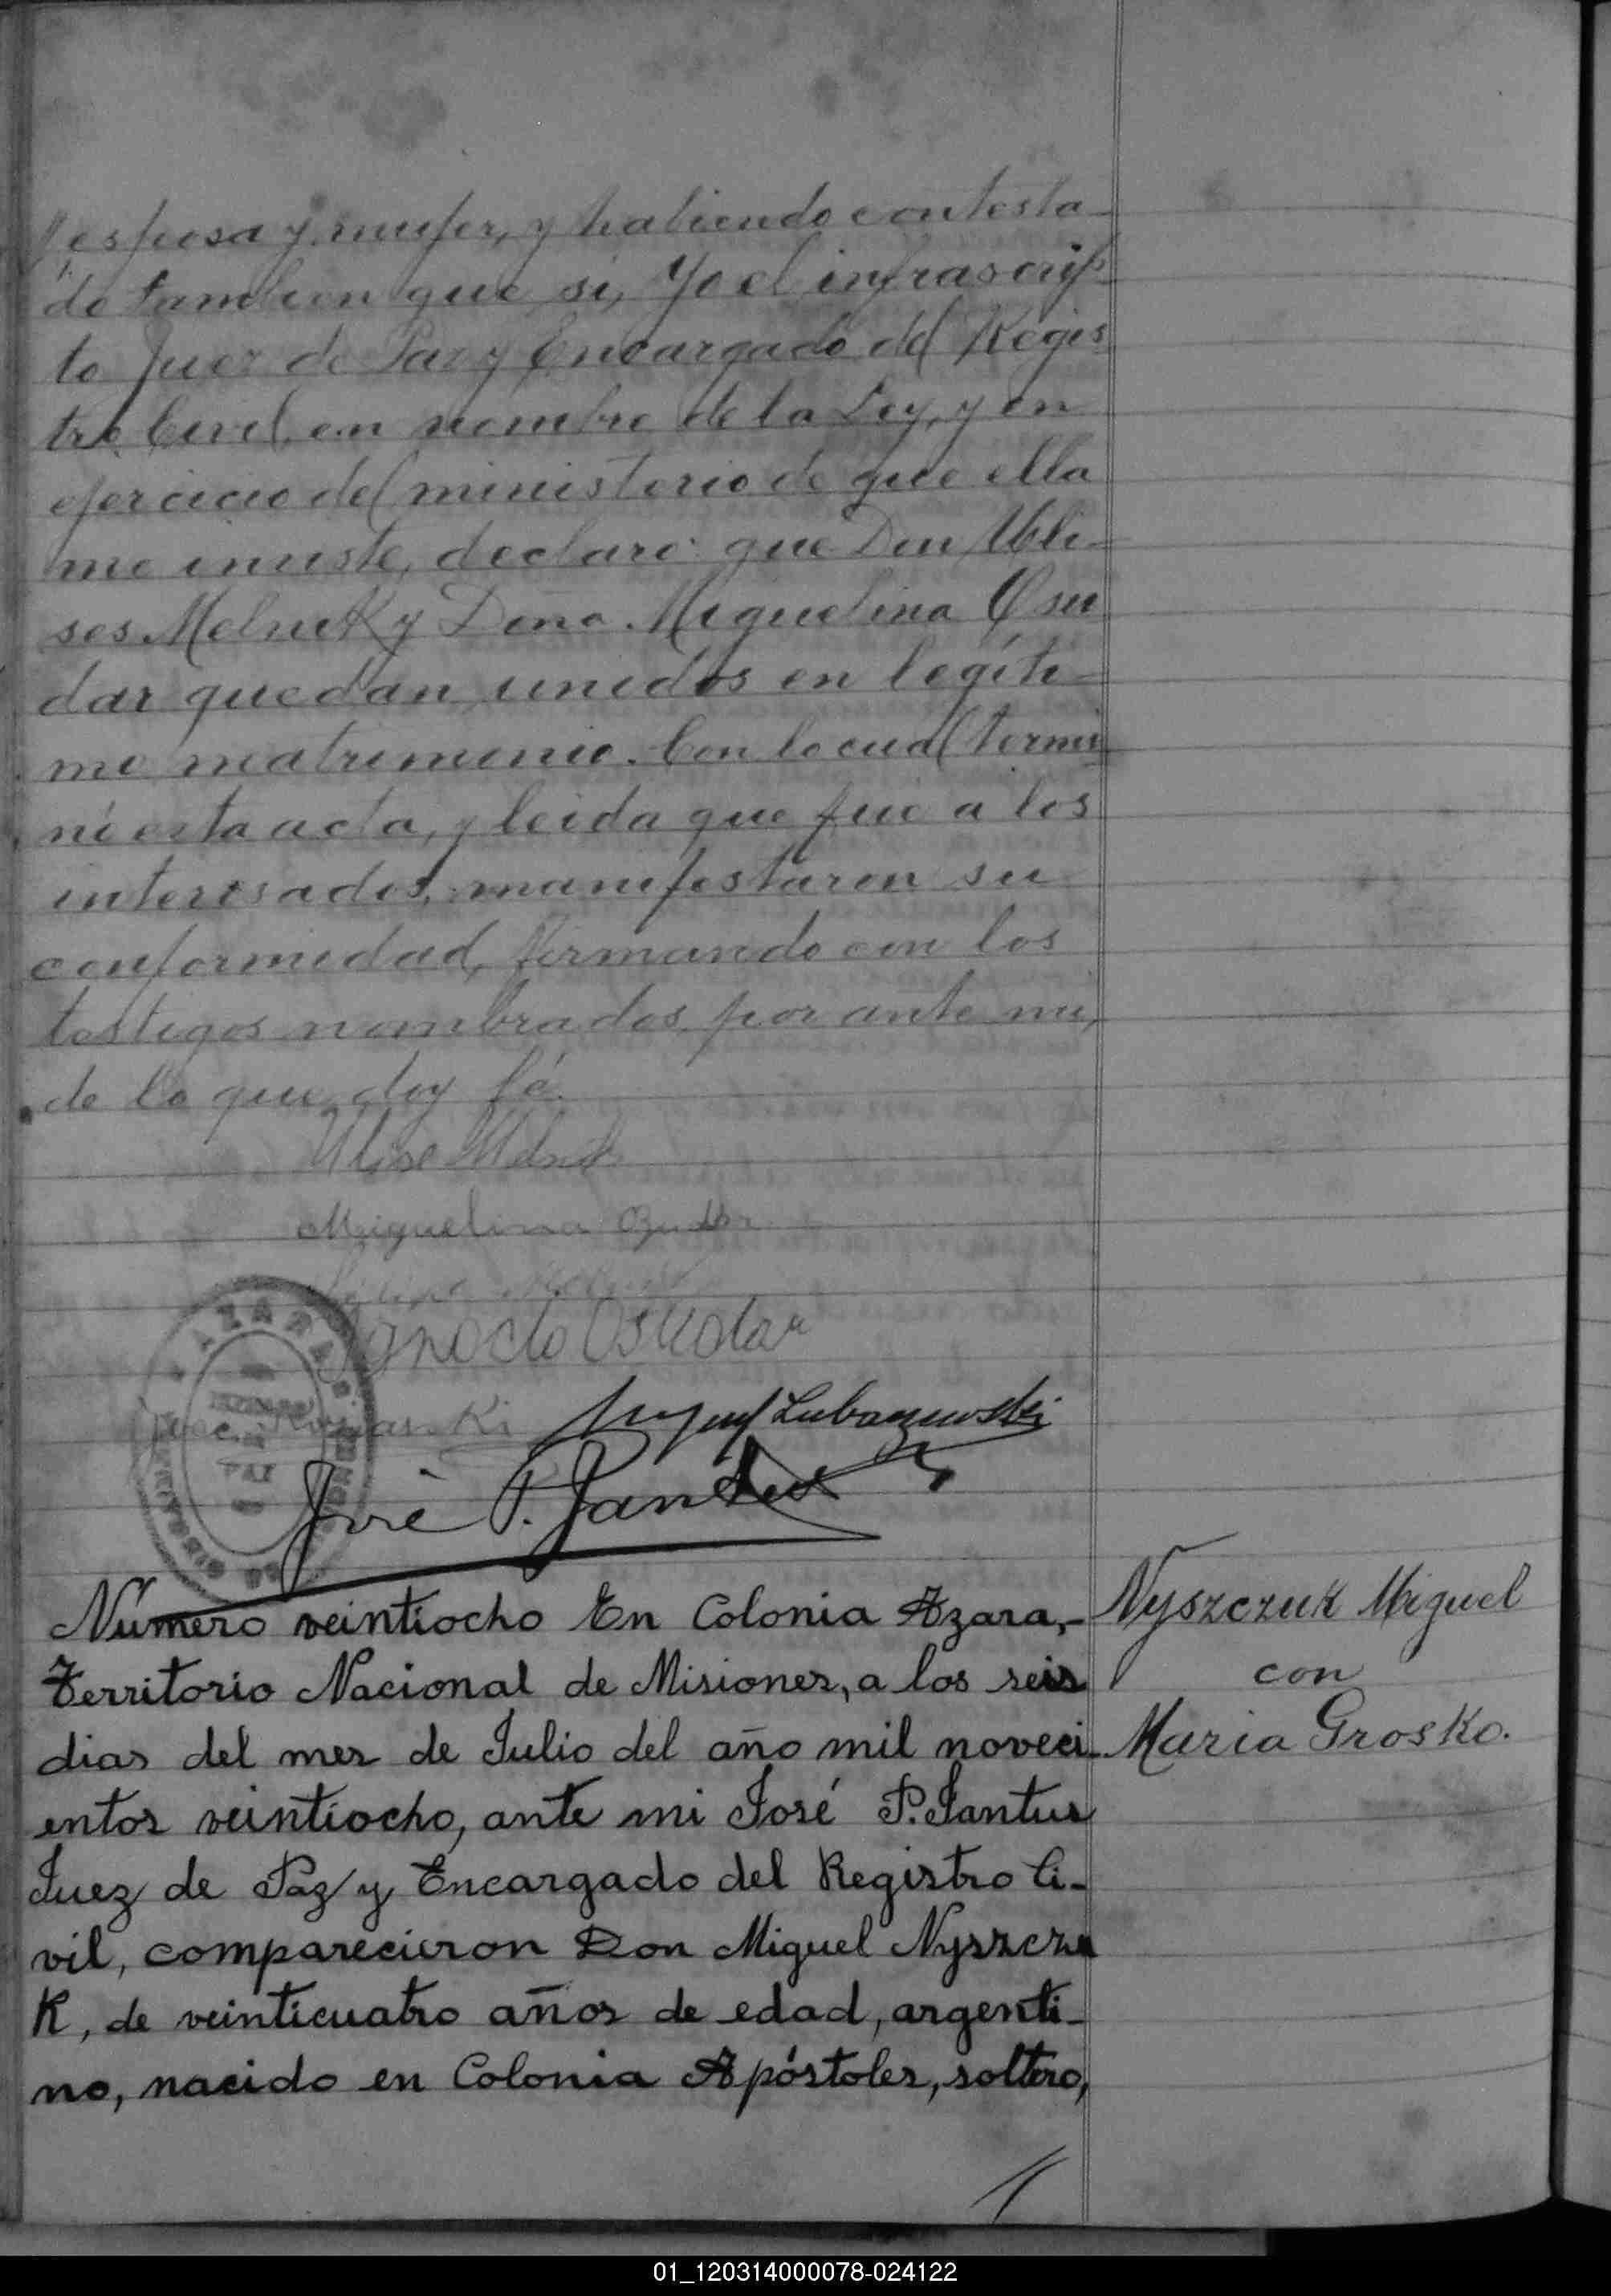 esposa y mujer, y habiendo contesta-
do tambien que si, Yo el infrascrip-
to Juez de Paz y Encargado del Regis-
tro Civil en nombre de la Ley, y en
ejercicio del ministerio de que ella
me inviste, declaro que Don Uli-
ses Melnik y Doña Miguelina Osu
dar quedan unidos en legíti-
mo matrimonio. Con lo cual termi
nó esta acta, y leida que fue a los
interesados, manifestaron su
conformidad, firmando con los
testigos nombrados por ante mi,
de lo que doy fé.
Ulise
Miguelina
Ignacio Osudar
José P. Jantus
AZARA
PAZ
Número veintiocho En Colonia Azara,-
Territorio Nacional de Misiones, a los seis
dias del mes de Julio del año mil noveci-
entos veintiocho, ante mi José P. Jantus
Juez de Paz y Encargado del Registro Ci-
vil, comparecieron Don Miguel Nyszczu
K, de veinticuatro años de edad, argenti-
no, nacido en Colonia Apóstoles, soltero,
Nyszczuk Miguel
con
Maria Grosko.
01_120314000078-024122